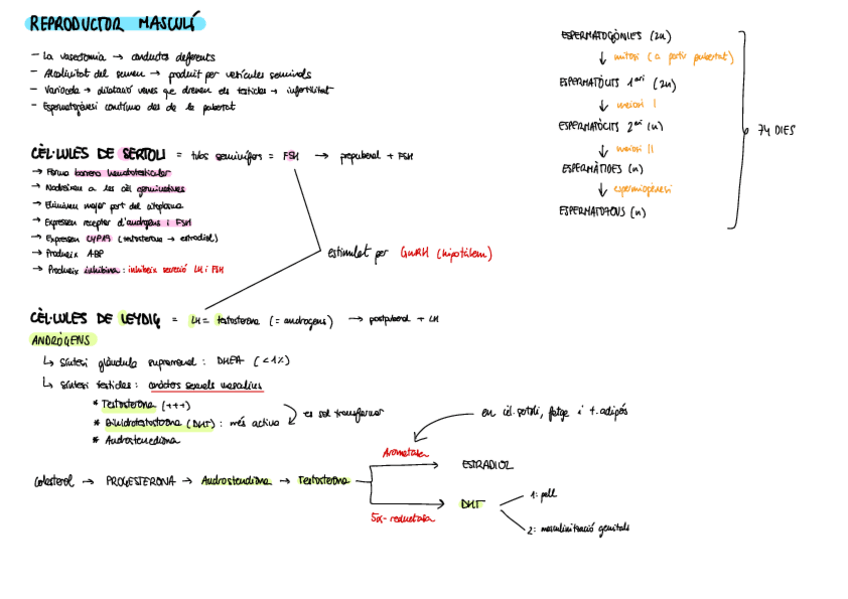 REPRODUCTOR MASCULÍ
- La vasectomia → conductes deferents
- Alcalinitat del semen → produït per vesícules seminals
- Varicocele → dilatació venes que drenen els testicles → infertilitat
- Espermatogènesi contínua des de la pubertat
CÈL·LULES DE SERTOLI = tubs seminífers = FSH → prepuberal + FSH
→ Forma barrera hematotesticular
→ Nodreixen a les cèl germinatives
→ Eliminen major part del citoplasma
→ Expressen receptor d'andrògens i FSH
→ Expressen CYP19 (testosterona → estradiol)
→ Produeix ABP
→ Produeix inhibina: inhibeix secreció LH i FSH
estimulat per GnRH (hipotàlem)
CÈL·LULES DE LEYDIG = LH = testosterona (= androgens) → postpuberal + LH
ANDRÒGENS
↳ Síntesi glàndula suprarrenal: DHEA (<1%)
↳ Síntesi testicles: caràcters sexuals masculins
* Testosterona (+++)
* Dihidrotestosterona (DHT): més activa
* Androstenediona
es sol transformar
en cèl. sertoli, fetge i t. adipós
Colesterol → PROGESTERONA → Androstendiona → Testosterona
Aromatasa
ESTRADIOL
5α-reductasa
DHT
1: pell
2: masculinització genitals
ESPERMATOGÒNIES (2n)
↓ mitosi (a partir pubertat)
ESPERMATÒCITS 1ari (2n)
↓ meiosi I
ESPERMATÒCITS 2ari (n)
↓ meiosi II
ESPERMÀTIDES (n)
↓ espermiogènesi
ESPERMATOZOUS (n)
74 DIES